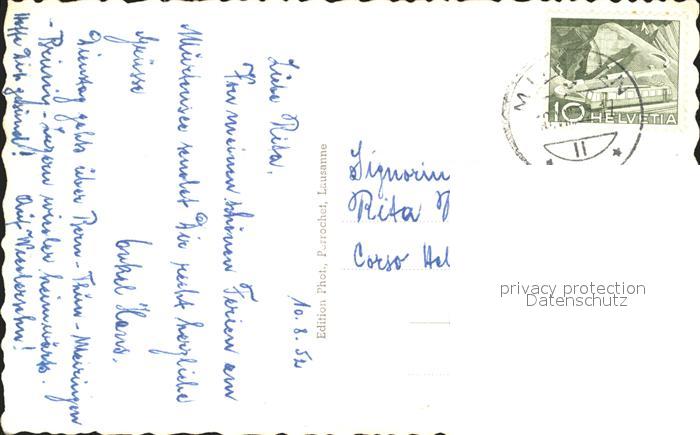 10.8.52
Liebe Rita,
Von meinen schönen Ferien am
Murtensee sendet Dir recht herzliche
Grüsse
Onkel Hans.
Dienstag gehts über Bern-Thun-Meiringen
-Brünig-Luzern wieder heimwärts.
Hoffe Dich gesund! Auf Wiedersehn!
Edition Phot., Perrochet, Lausanne
Signorin
Rita
Corso
10
HELVETIA
II
privacy protection
Datenschutz